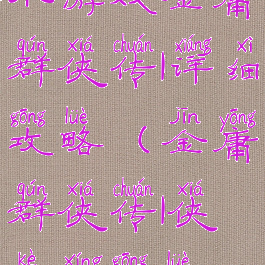 游戏金庸
qún xiá chuán xiáng xì
群侠传|详细
gōng lüè jīn yōng
攻略(金庸
qún xiá chuán xiá
群侠传|侠
kè xíng gōng lüè